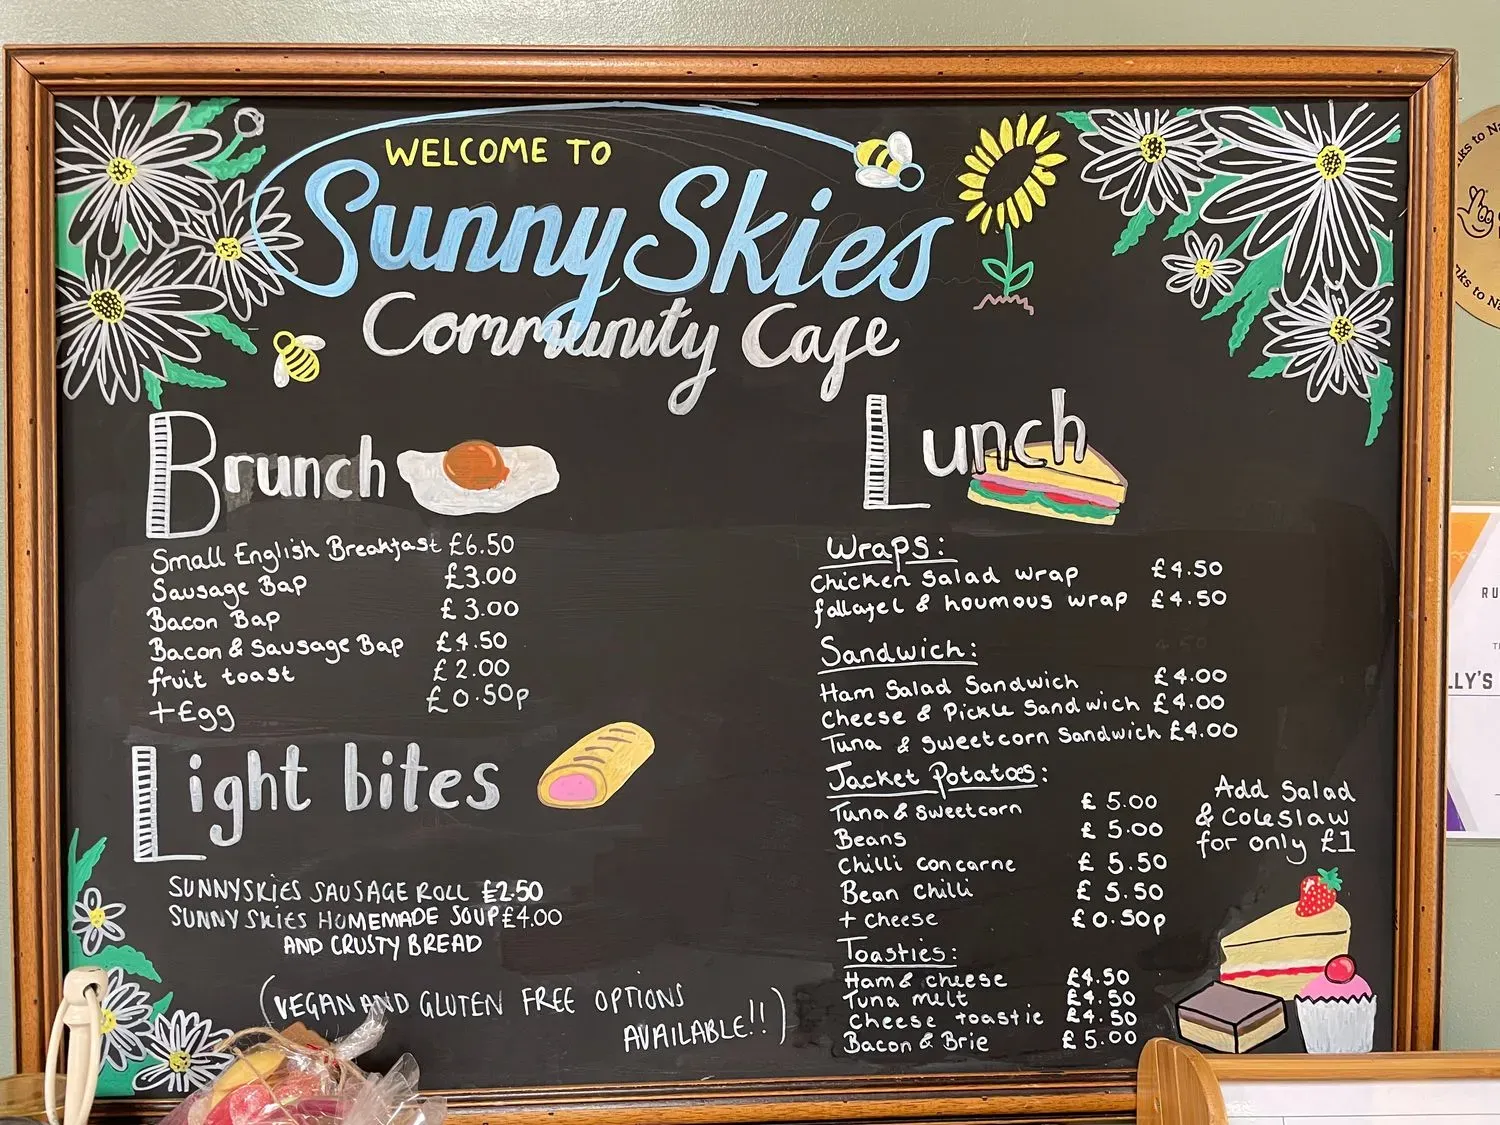 WELCOME TO
Sunny Skies
Community Cafe
Brunch
Small English Breakfast £6.50
Sausage Bap £3.00
Bacon Bap £3.00
Bacon & Sausage Bap £4.50
fruit toast £2.00
+Egg £0.50p
Light bites
SUNNYSKIES SAUSAGE ROLL £2.50
SUNNY SKIES HOMEMADE SOUP £4.00
AND CRUSTY BREAD
(VEGAN AND GLUTEN FREE OPTIONS
AVAILABLE!!)
Lunch
Wraps:
Chicken Salad wrap £4.50
fallafel & houmous wrap £4.50
Sandwich:
Ham Salad Sandwich £4.00
Cheese & Pickle Sandwich £4.00
Tuna & Sweetcorn Sandwich £4.00
Jacket Potatoes:
Tuna & Sweetcorn £5.00
Beans £5.00
Chilli Concarne £5.50
Bean Chilli £5.50
+ cheese £0.50p
Add Salad
& Coleslaw
for only £1
Toasties:
Ham & cheese £4.50
Tuna melt £4.50
Cheese toastie £4.50
Bacon & Brie £5.00
RU
LLY'S